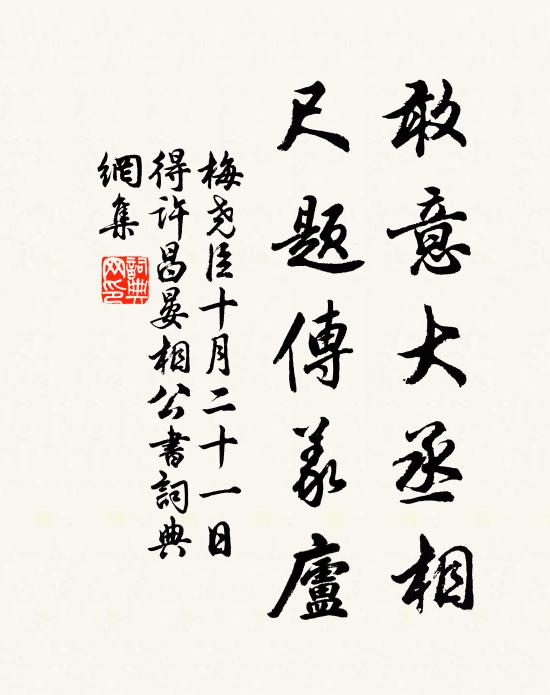 敢意大丞相
尺題傳義廬
梅堯臣十月二十一日
得許昌晏相公書詞典
網集
詞典
网印